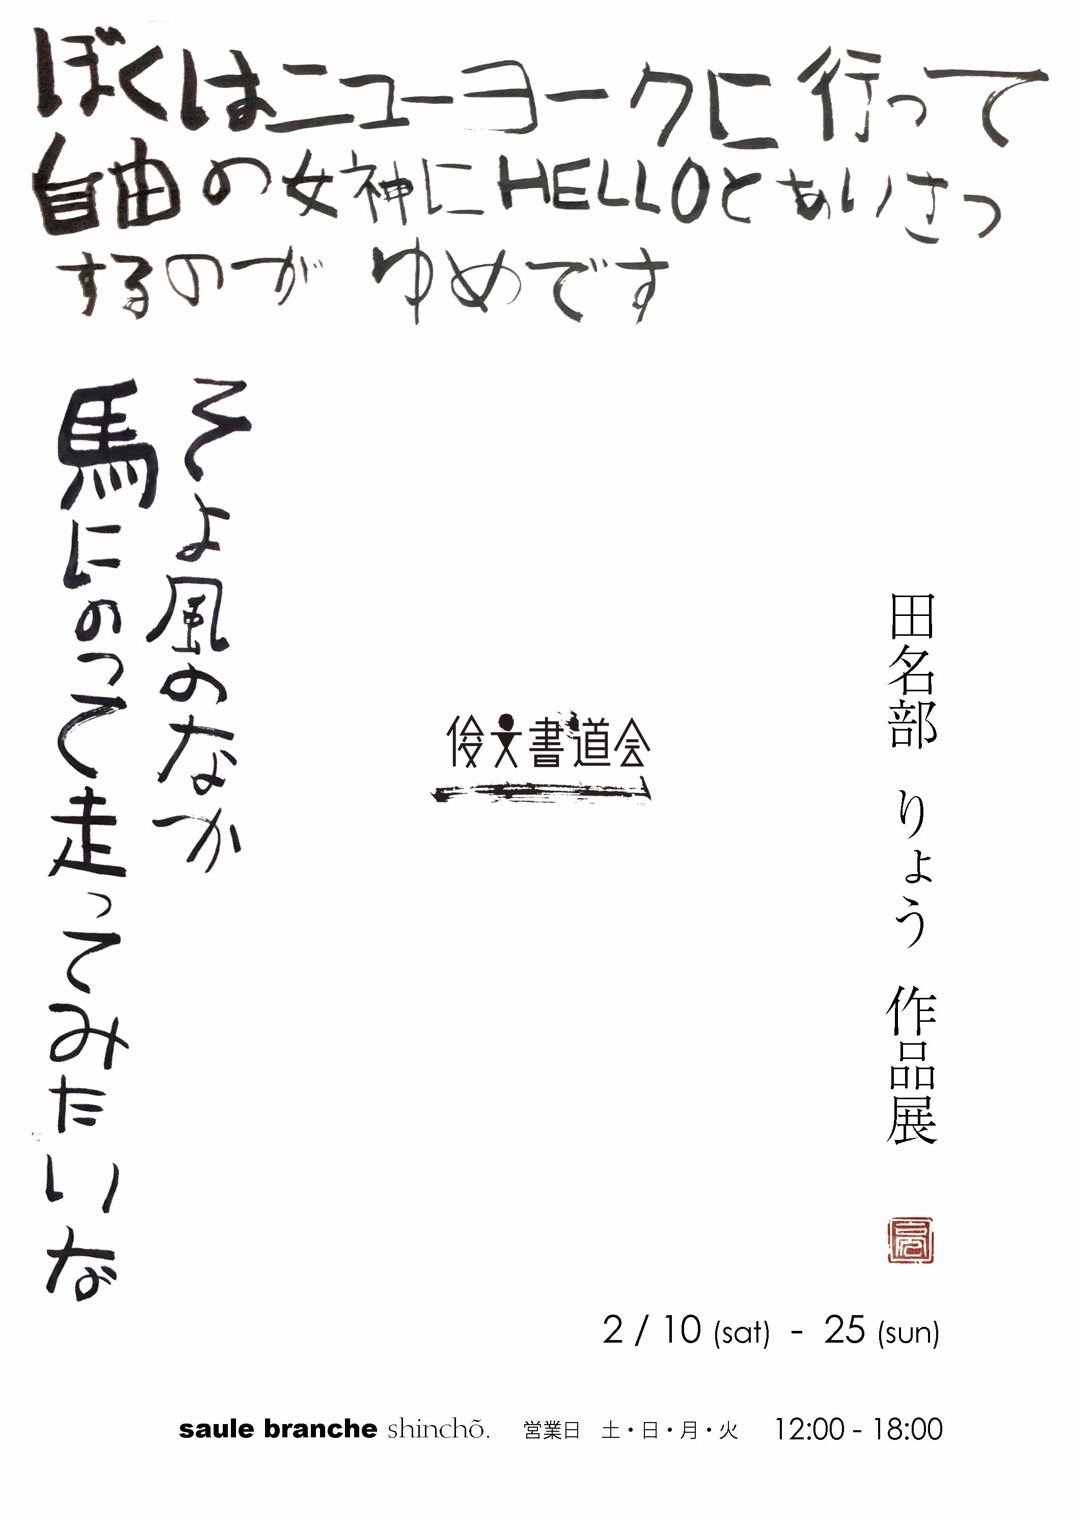 ぼくはニューヨークに行って
自由の女神にHELLOとあいさつ
するのが ゆめです
そよ風のなか
馬にのって走ってみたいな
田名部 りょう 作品展
俊文書道会
2 / 10 (sat) - 25 (sun)
saule branche shinchõ. 営業日 土・日・月・火 12:00 - 18:00